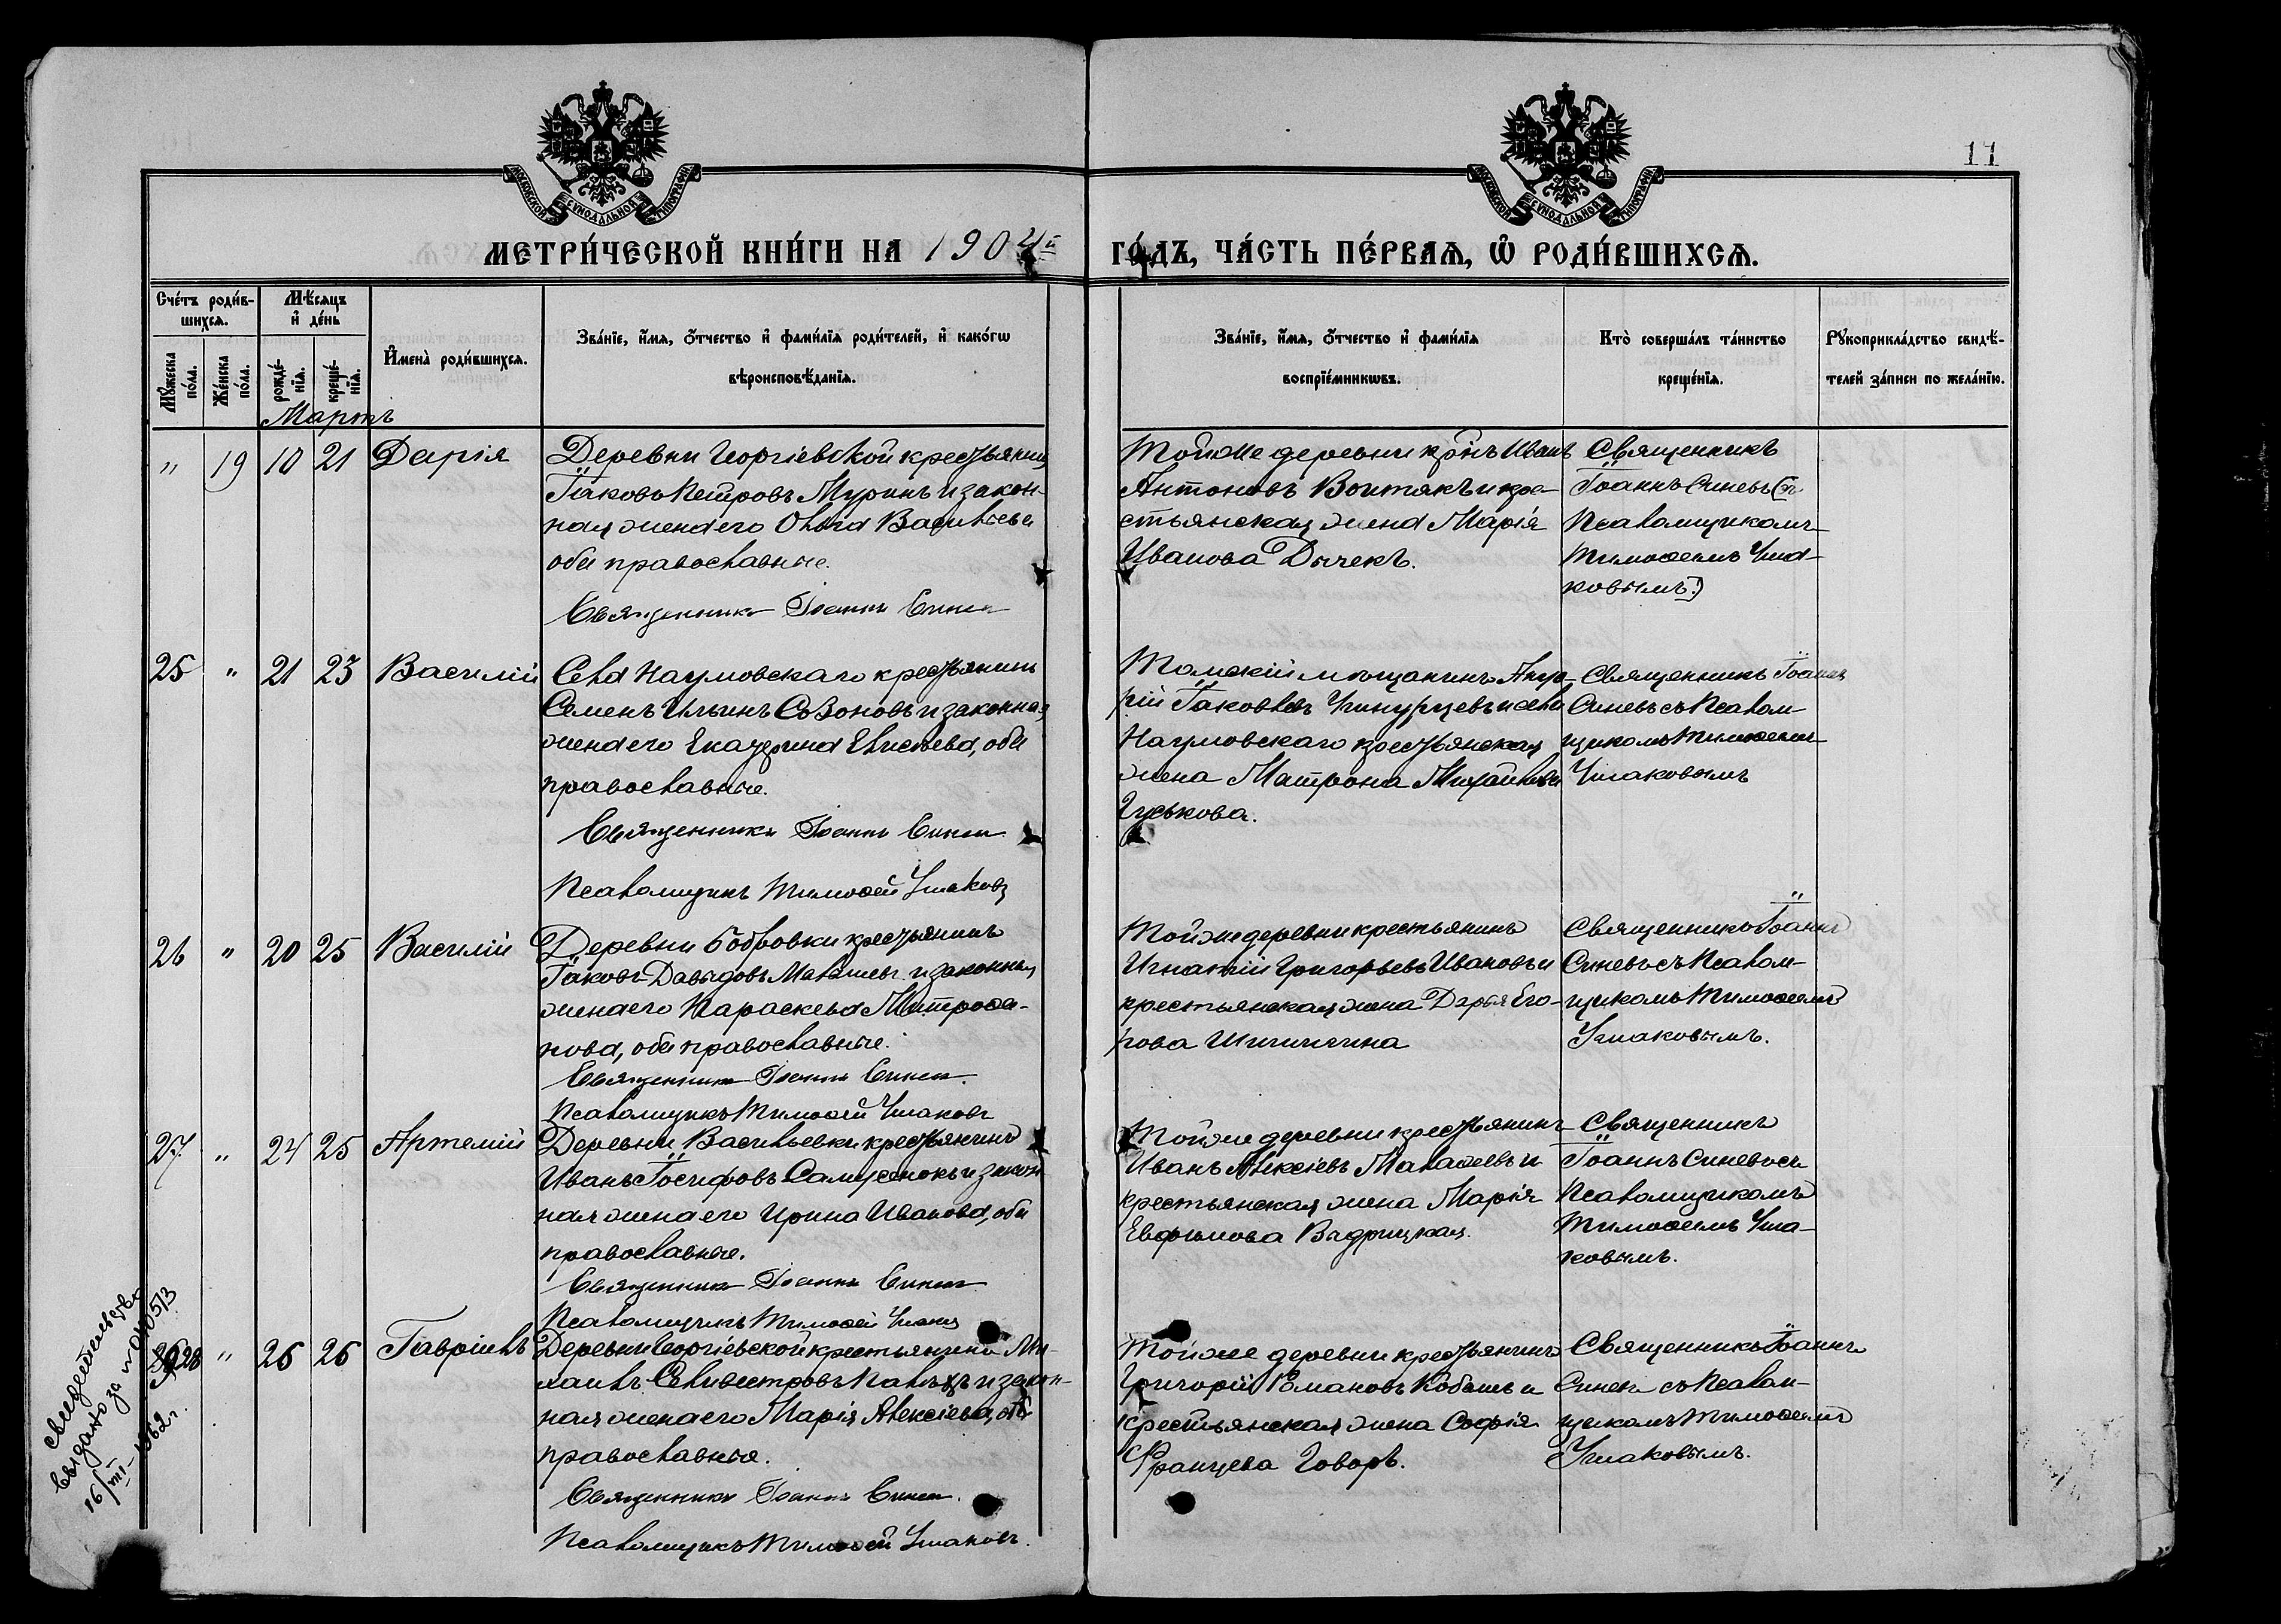 11
МОСКОВСКОЙ СѴНОДАЛЬНОЙ ТИПОГРАФІИ
МОСКОВСКОЙ СѴНОДАЛЬНОЙ ТИПОГРАФІИ
МЕТРИ́ЧЕСКОЙ КНИ́ГИ НА 1904й ГО́ДЪ, ЧА́СТЬ ПЕ́РВАѦ, Ѡ РОДИ́ВШИХСѦ.
Счетъ роди́вшихсѧ.
Мꙋжеска по́ла.
Же́нска по́ла.
Мѣсѧцъ и де́нь
рожде́нїѧ.
креще́нїѧ.
Имена̀ роди́вшихсѧ.
Зва́нїе, и́мѧ, ѻ҆́тчество и фами́лїѧ роди́телей, и како́гѡ
вѣроисповѣ́данїѧ.
Зва́нїе, и́мѧ, ѻ҆́тчество и фами́лїѧ
воспрїе́мникѡвъ.
Кто̀ соверша́лъ та́инство
креще́нїѧ.
Рꙋкоприкла́дство свидѣ́-
телей за́писи по жела́нїю.
Мартъ
" 19 10 21 Дарія
Деревни Георгіевской крестьянинъ
Іаковъ Петровъ Муринъ и закон-
ная жена его Ольга Васильева
оба православные.
Священникъ Іоаннъ Синевъ
Той же деревни крнъ Иванъ
Антоновъ Войтякъ и кре-
стьянская жена Марія
Иванова Дычекъ.
Священникъ
Іоаннъ Синевъ (съ
Псаломщикомъ
Тимофеемъ Уша-
ковымъ.)
25 " 21 23 Василій
Села Наумовскаго крестьянинъ
Семенъ Ильинъ Созоновъ и законная
жена его Екатерина Елисѣева, оба
православные.
Священникъ Іоаннъ Синевъ
Псаломщикъ Тимофей Ушаковъ
Томскій мѣщанинъ
Іаковлевъ и села
Наумовскаго крестьянская
жена Матрона Михайлова
Гуськова.
Священникъ Іоаннъ
Синевъ съ Псалом-
щикомъ Тимофеемъ
Ушаковымъ
26 " 20 25 Василій
Деревни Бобровки крестьянинъ
Іаковъ Давыдовъ и законная
жена его Параскева Митрофа-
нова, оба православные.
Священникъ Іоаннъ Синевъ.
Псаломщикъ Тимофей Ушаковъ
Той же деревни крестьянинъ
Игнатій Григорьевъ Ивановъ и
крестьянская жена Дарья Его-
рова Шишигина
Священникъ Іоаннъ
Синевъ съ Псалом-
щикомъ Тимофеемъ
Ушаковымъ.
27 " 24 25 Артемій
Деревни Васильевки крестьянинъ
Иванъ Іосифовъ Самусенокъ и закон
ная жена его Ирина Иванова, оба
православные.
Священникъ Іоаннъ Синевъ
Псаломщикъ Тимофей Ушаковъ
Той же деревни крестьянинъ
Иванъ Алексіевъ и
крестьянская жена Марія
Евфимова Вадрицкая.
Священникъ
Іоаннъ Синевъ съ
Псаломщикомъ
Тимофеемъ Уша-
ковымъ.
28 " 26 26 Гавріилъ
Деревни Георгіевской крестьянинъ Ми-
хаилъ Селивестровъ и закон-
ная жена его Марія Алексіева, оба
православные.
Священникъ Іоаннъ Синевъ.
Псаломщикъ Тимофей Ушаковъ.
Той же деревни крестьянинъ
Григорій Романовъ Кобышъ и
крестьянская жена Софія
Францева Говоръ.
Священникъ Іоаннъ
Синевъ съ Псалом-
щикомъ Тимофеемъ
Ушаковымъ.
свидетельство
выдано за
16/III-1962г.